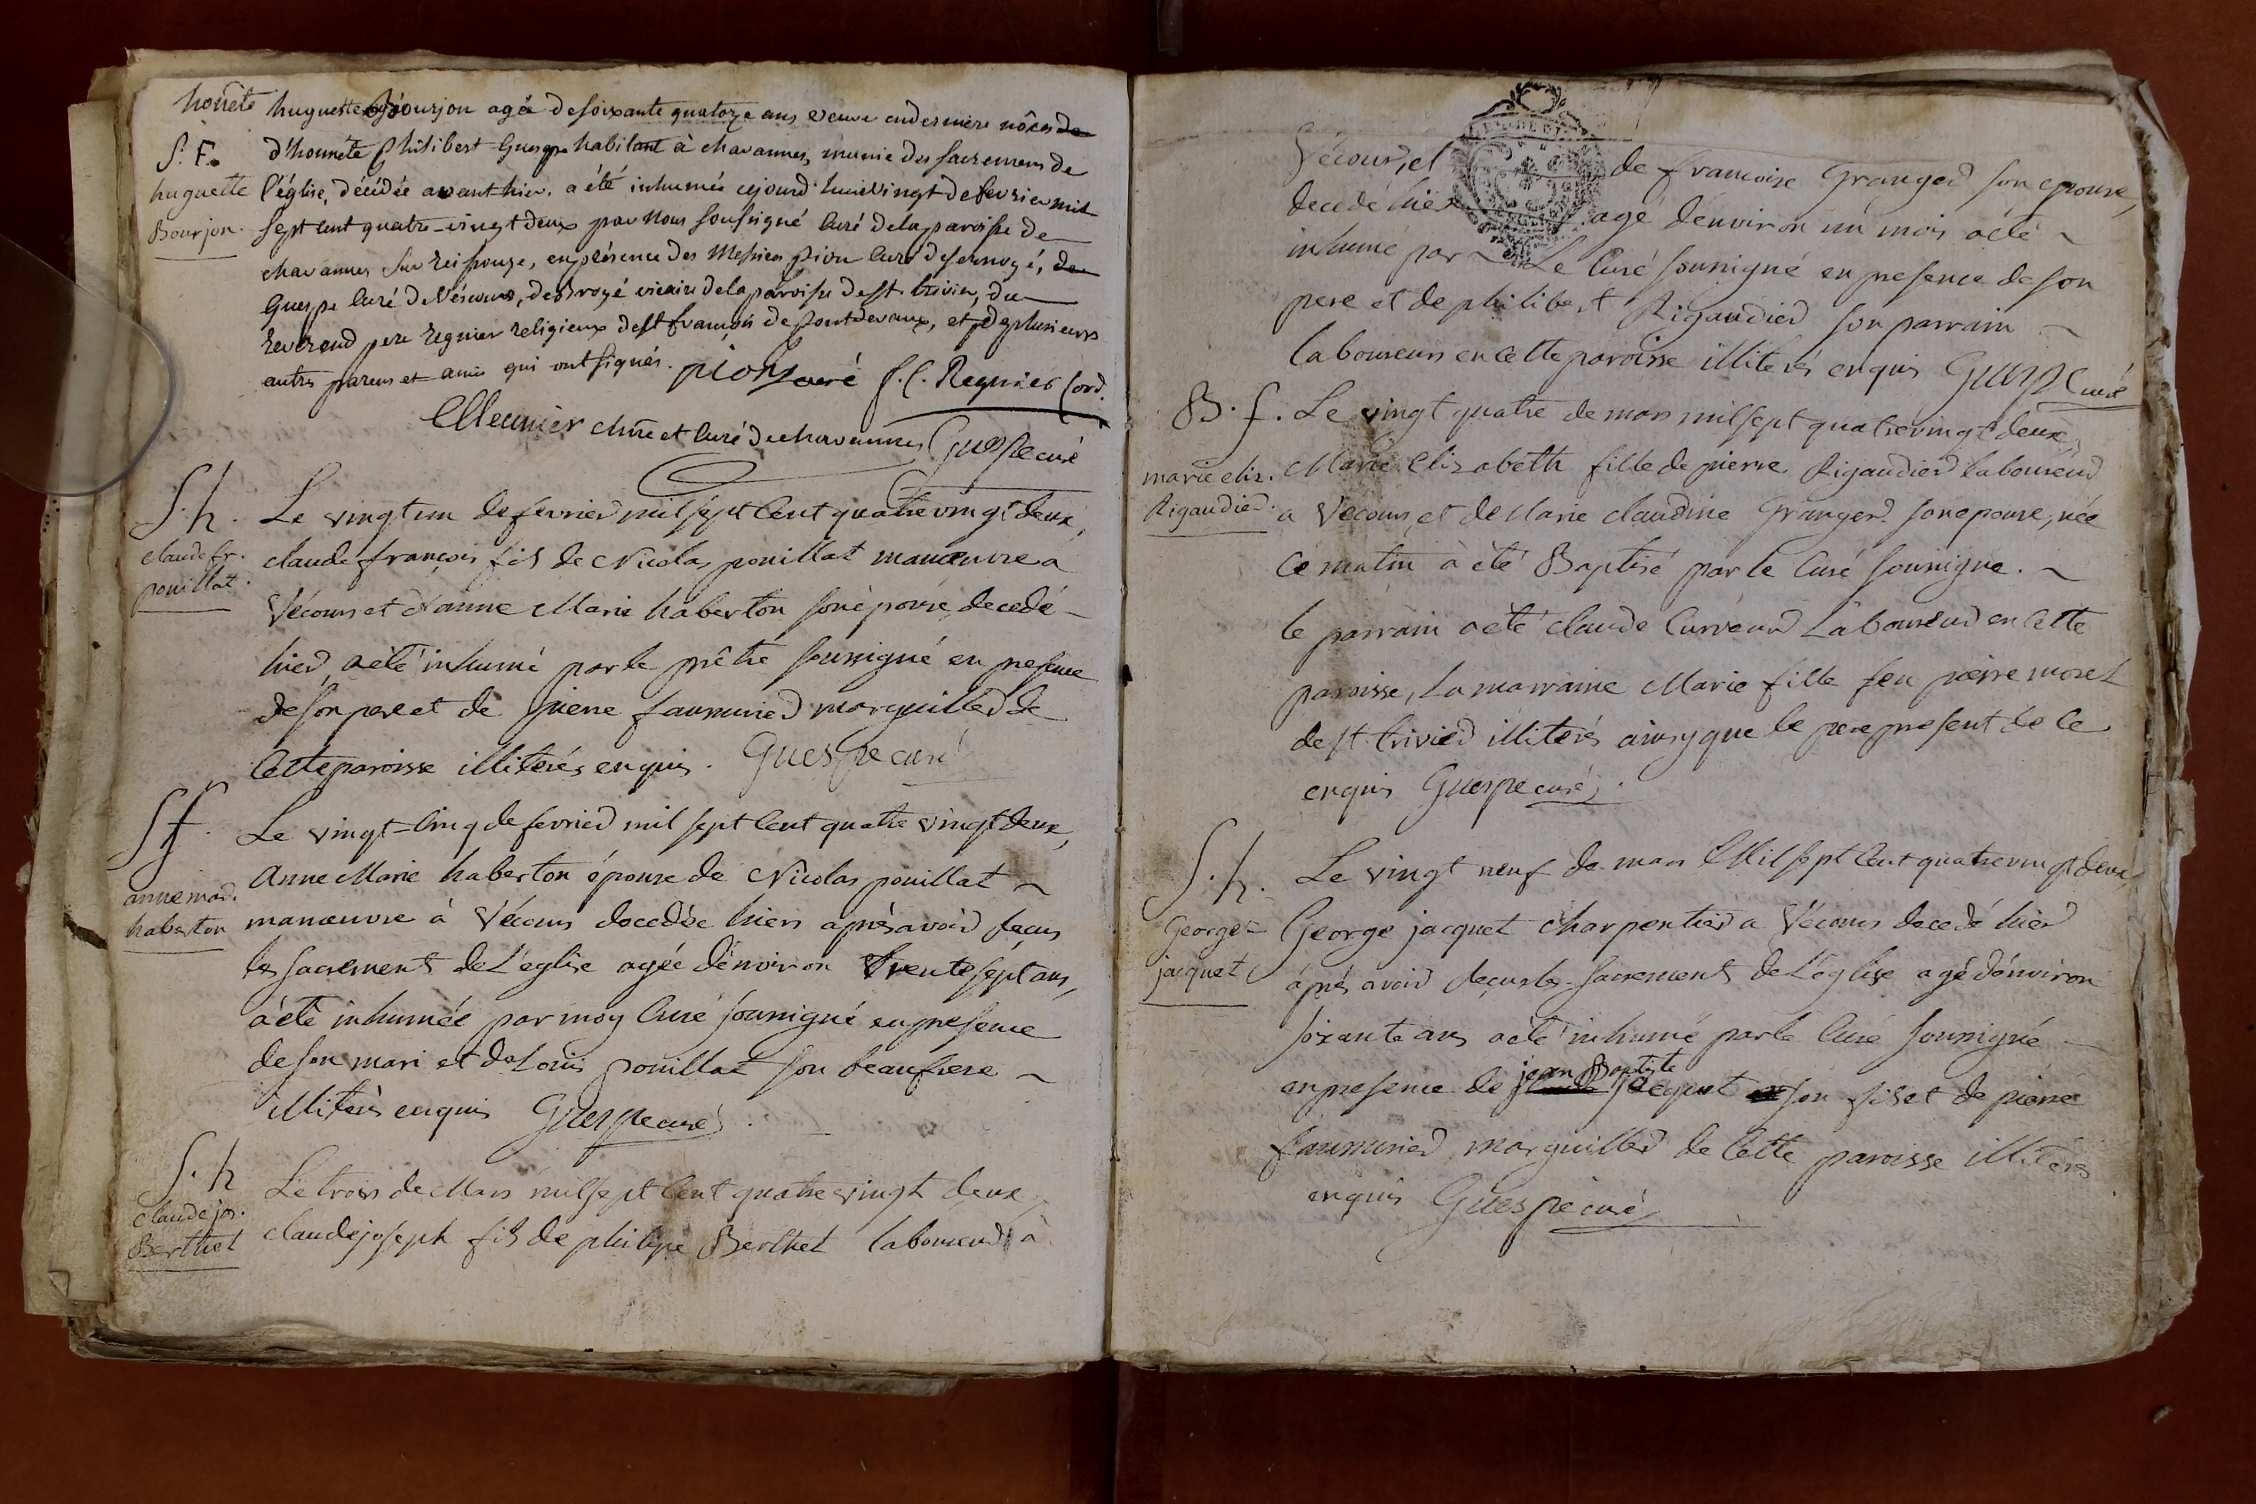 honete huguette Bourjon agée de soixante quatorze ans veuve en derniere nôces de
S. F. d'honnete philibert Guespe habitant à chavannes, munie des sacremens de
huguette l'église, décédée avant hier, a été inhumée cejourd'huui vingt de fevrier mil
Bourjon. sept cent quatre-vingt deux par Nous soussigné curé de la paroisse de
chavannes sur reissouze, en présence des Messieurs pion curé de sermoyé, de
Guespe curé de Véscours, de Broyé vicaire de la paroisse de st. trivier, du
reverend pere regnier religieux de st françois de pontdevaux, et de plusieurs
autres parens et amis qui ont signés. pion curé f. C. Regnier Cord.
Meunier chne et curé de chavannes Guespe curé
S. h. Le vingt un de fevrier mil sept cent quatre vingt deux,
claude fr. claude françois fils de Nicolas pouillat manœuvre a
pouillat. Vécours et d'anne Marie haberton son épouse, decedé
hier, a été inhumé par le prêtre soussigné en presence
de son pere et de pierre faumurier marguiller de
cette paroisse illiterés enquis. Guespe curé
S f. Le vingt-cinq de fevrier mil sept cent quatre vingt deux,
anne mar. Anne Marie haberton épouse de Nicolas pouillat
haberton manœuvre à Vécours decedée hiers après avoir reçus
les sacrement de L'eglise agée d'environ trente sept ans,
à été inhumée par moy curé soussigné en presence
de son mari et de Louis pouillat son beaufrere
illiterés enquis Guespe curé.
S. h Le trois de Mars mil sept cent quatre vingt deux,
claude jos. claude joseph fils de philipe Berthet laboureur à
Berthet
Vécour, et de francoise Granger son epouse,
decedé hier agé denviron un mois a été
inhumé par Le curé soussigné en presence de son
pere et de philibert Rigaudier son parrain
laboureurs en cette paroisse illiterés enquis Guespe curé
B. f. Le vingt quatre de mars mil sept quatrevingt deux,
marie elis. Marie Elizabeth fille de pierre Rigaudier laboureur
Rigaudier. a Vecours, et de Marie claudine Granger son epouse, née
ce matin à été Baptisé par le curé soussigné.
le parrain a été claude Curveur Laboureur en cette
paroisse, La marraine Marie fille feu pierre morel
de st. trivier illiterés ainsy que le pere present de ce
enquis Guespe curé.
S. h. Le vingt neuf de mars Mil sept cent quatre vingt deux,
George George jacquet charpentier a Vécours decedé hier
jacquet après avoir reçus les sacrement de L'église agé d'environ
soixante ans a été inhumé par le curé soussigné
en presence de jean Baptiste jacquet son fils et de pierre
faumurier marguiller de cette paroisse illiterés
enquis Guespe curé